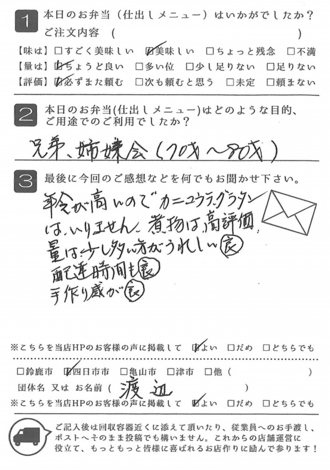 1 本日のお弁当（仕出しメニュー）はいかがでしたか？
ご注文内容 (　　　)
【味は】□すごく美味しい ☑美味しい □ちょっと残念 □不満
【量は】☑ちょうど良い □多い位 □少し足りない □足りない
【評価】☑必ずまた頼む □次も頼むと思う □未定 □頼まない
2 本日のお弁当(仕出しメニュー)はどのような目的、
ご用途でのご利用でしたか？
兄弟、姉妹会(70才〜80才)
3 最後に今回のご感想などを何でもお聞かせ下さい。
年令が高いのでカニコウラグラタン
はいりません。煮物は高評価、
量は少し多い方がうれしい 良
配達時間も 良
手作り感が 良
※こちらを当店HPのお客様の声に掲載して ☑よい □だめ □どちらでも
□鈴鹿市 ☑四日市市 □亀山市 □津市 □他 (　　　)
団体名 又は お名前 ( 渡辺 )
※こちらを当店HPのお客様の声に掲載して ☑よい □だめ □どちらでも
ご記入後は回収容器近くに添えて頂いたり、従業員へのお手渡し、
ポストへそのまま投稿でも構いません。これからの店舗運営に
役立て、もっともっと皆様に喜ばれるお店作りに励んで参ります！